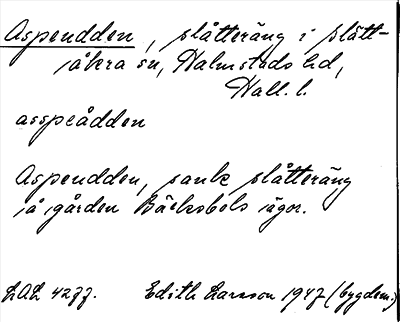 Aspendden, slåtteräng i Slätt-
åkra sn, Halmstads hd,
Hall. l.
asspeådden
Aspendden, sank slåtteräng
på gården Bäcksbols ägor.
LAL 4277. Edith Larsson 1947 (bygdem.)